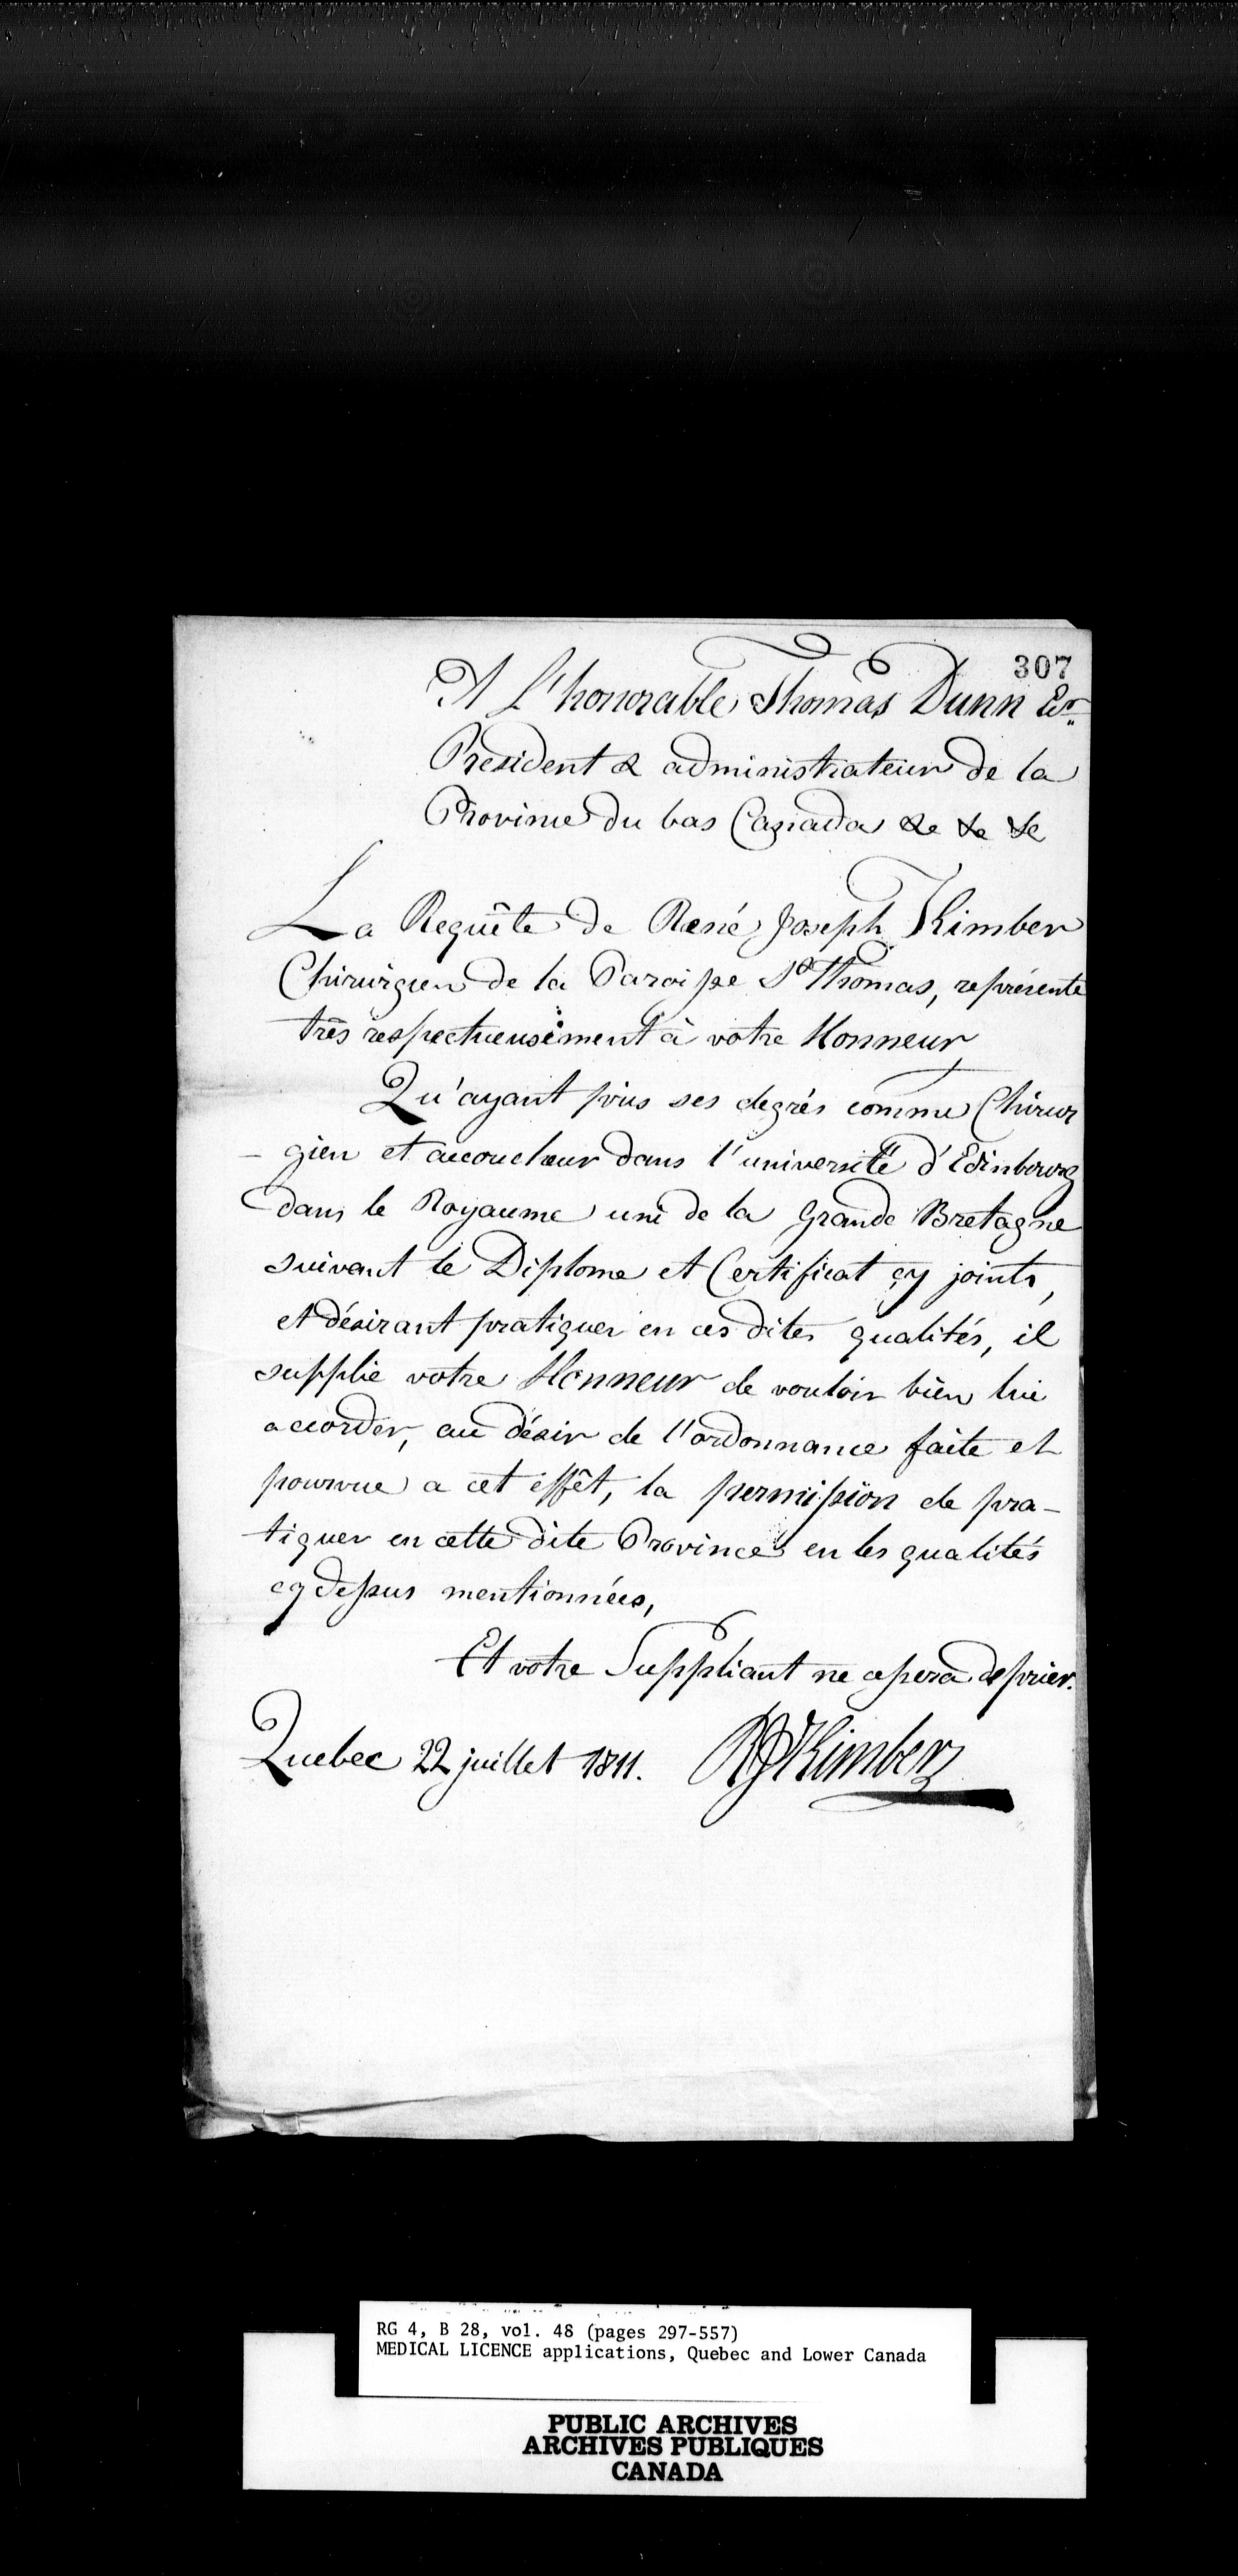 307
A L'honorable Thomas Dunn Ecr.
President & administrateur de la
Province du bas Canada &c &c &c
La Requête de René Joseph Kimber
Chirurgien de la Paroisse St Thomas, représente
très respectueusement à votre Honneur
Qu'ayant pris ses degrés comme Chirur
- gien et accoucheur dans l'université d'Edinbourg
dans le Royaume uni de la Grande Bretagne
suivant le Diplome et Certificat çy joints,
et désirant pratiquer en ces dites qualités, il
supplie votre Honneur de vouloir bien lui
accorder, au désir de l'ordonnance faite et
pourvue a cet éffêt, la permission de pra-
tiquer en cette dite Province en les qualités
cy dessus mentionnées,
Et votre Suppliant ne cessera de prier.
Quebec 22 juillet 1811. RJKimber
RG 4, B 28, vol. 48 (pages 297-557)
MEDICAL LICENCE applications, Quebec and Lower Canada
PUBLIC ARCHIVES
ARCHIVES PUBLIQUES
CANADA